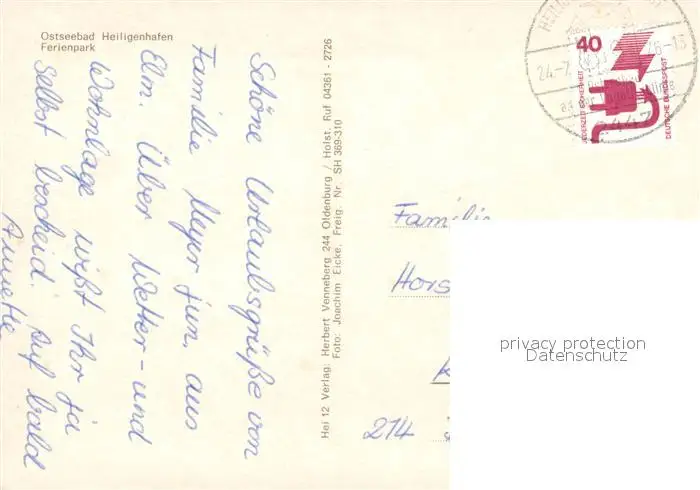 Ostseebad Heiligenhafen
Ferienpark
Schöne Urlaubsgrüße von
Familie Meyer jun. aus
Elm. Über Wetter- und
Wohnlage wißt Ihr ja
selbst bescheid. Auf bald
Annette
Hei 12 Verlag: Herbert Venneberg 244 Oldenburg / Holst. Ruf 04361 - 2726
Foto: Joachim Eicke, Freig. Nr. SH 369-310
40
JEDERZEIT SICHERHEIT
DEUTSCHE BUNDESPOST
24.-7.
Familie
Hors
214
privacy protection
Datenschutz